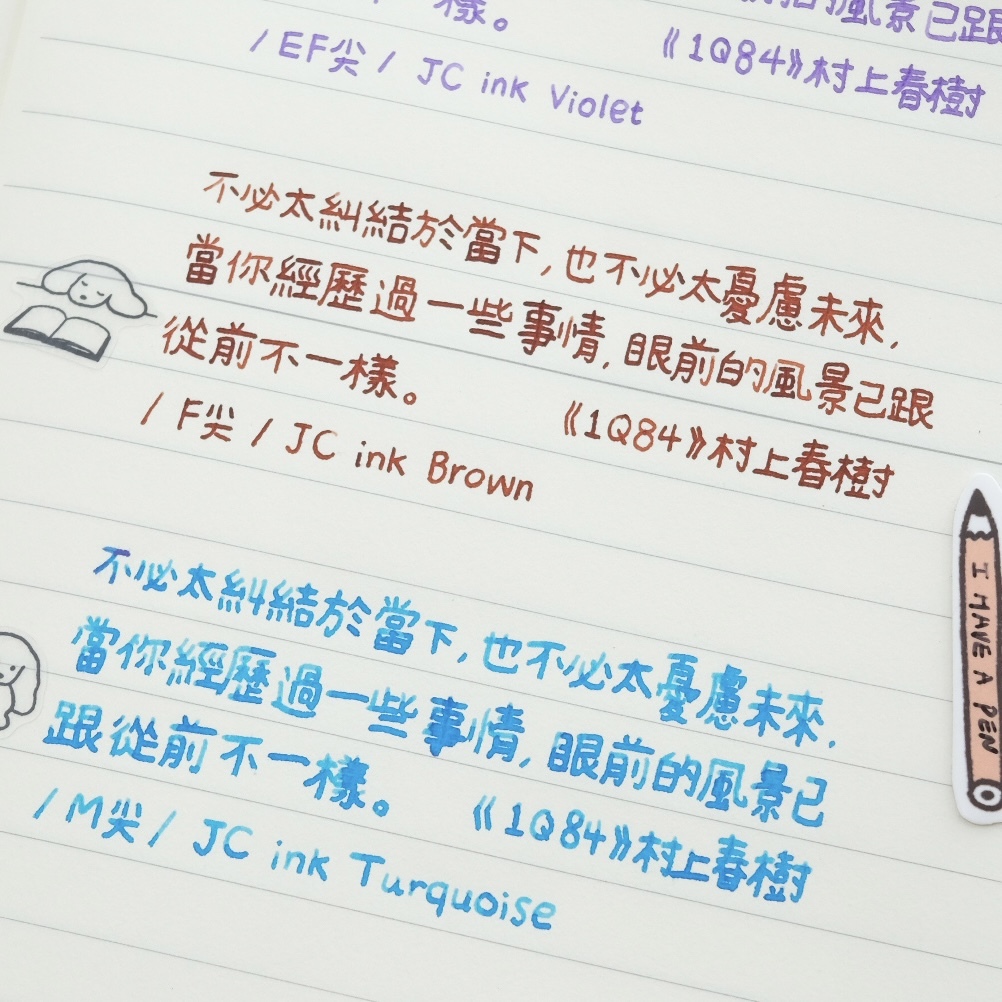 樣。
前的風景已跟
/ EF尖 / JC ink Violet
《1Q84》村上春樹
不必太糾結於當下,也不必太憂慮未來,
當你經歷過一些事情,眼前的風景已跟
從前不一樣。
《1Q84》村上春樹
/ F尖 / JC ink Brown
不必太糾結於當下,也不必太憂慮未來,
當你經歷過一些事情,眼前的風景已
跟從前不一樣。
《1Q84》村上春樹
/ M尖 / JC ink Turquoise
I HAVE A PEN